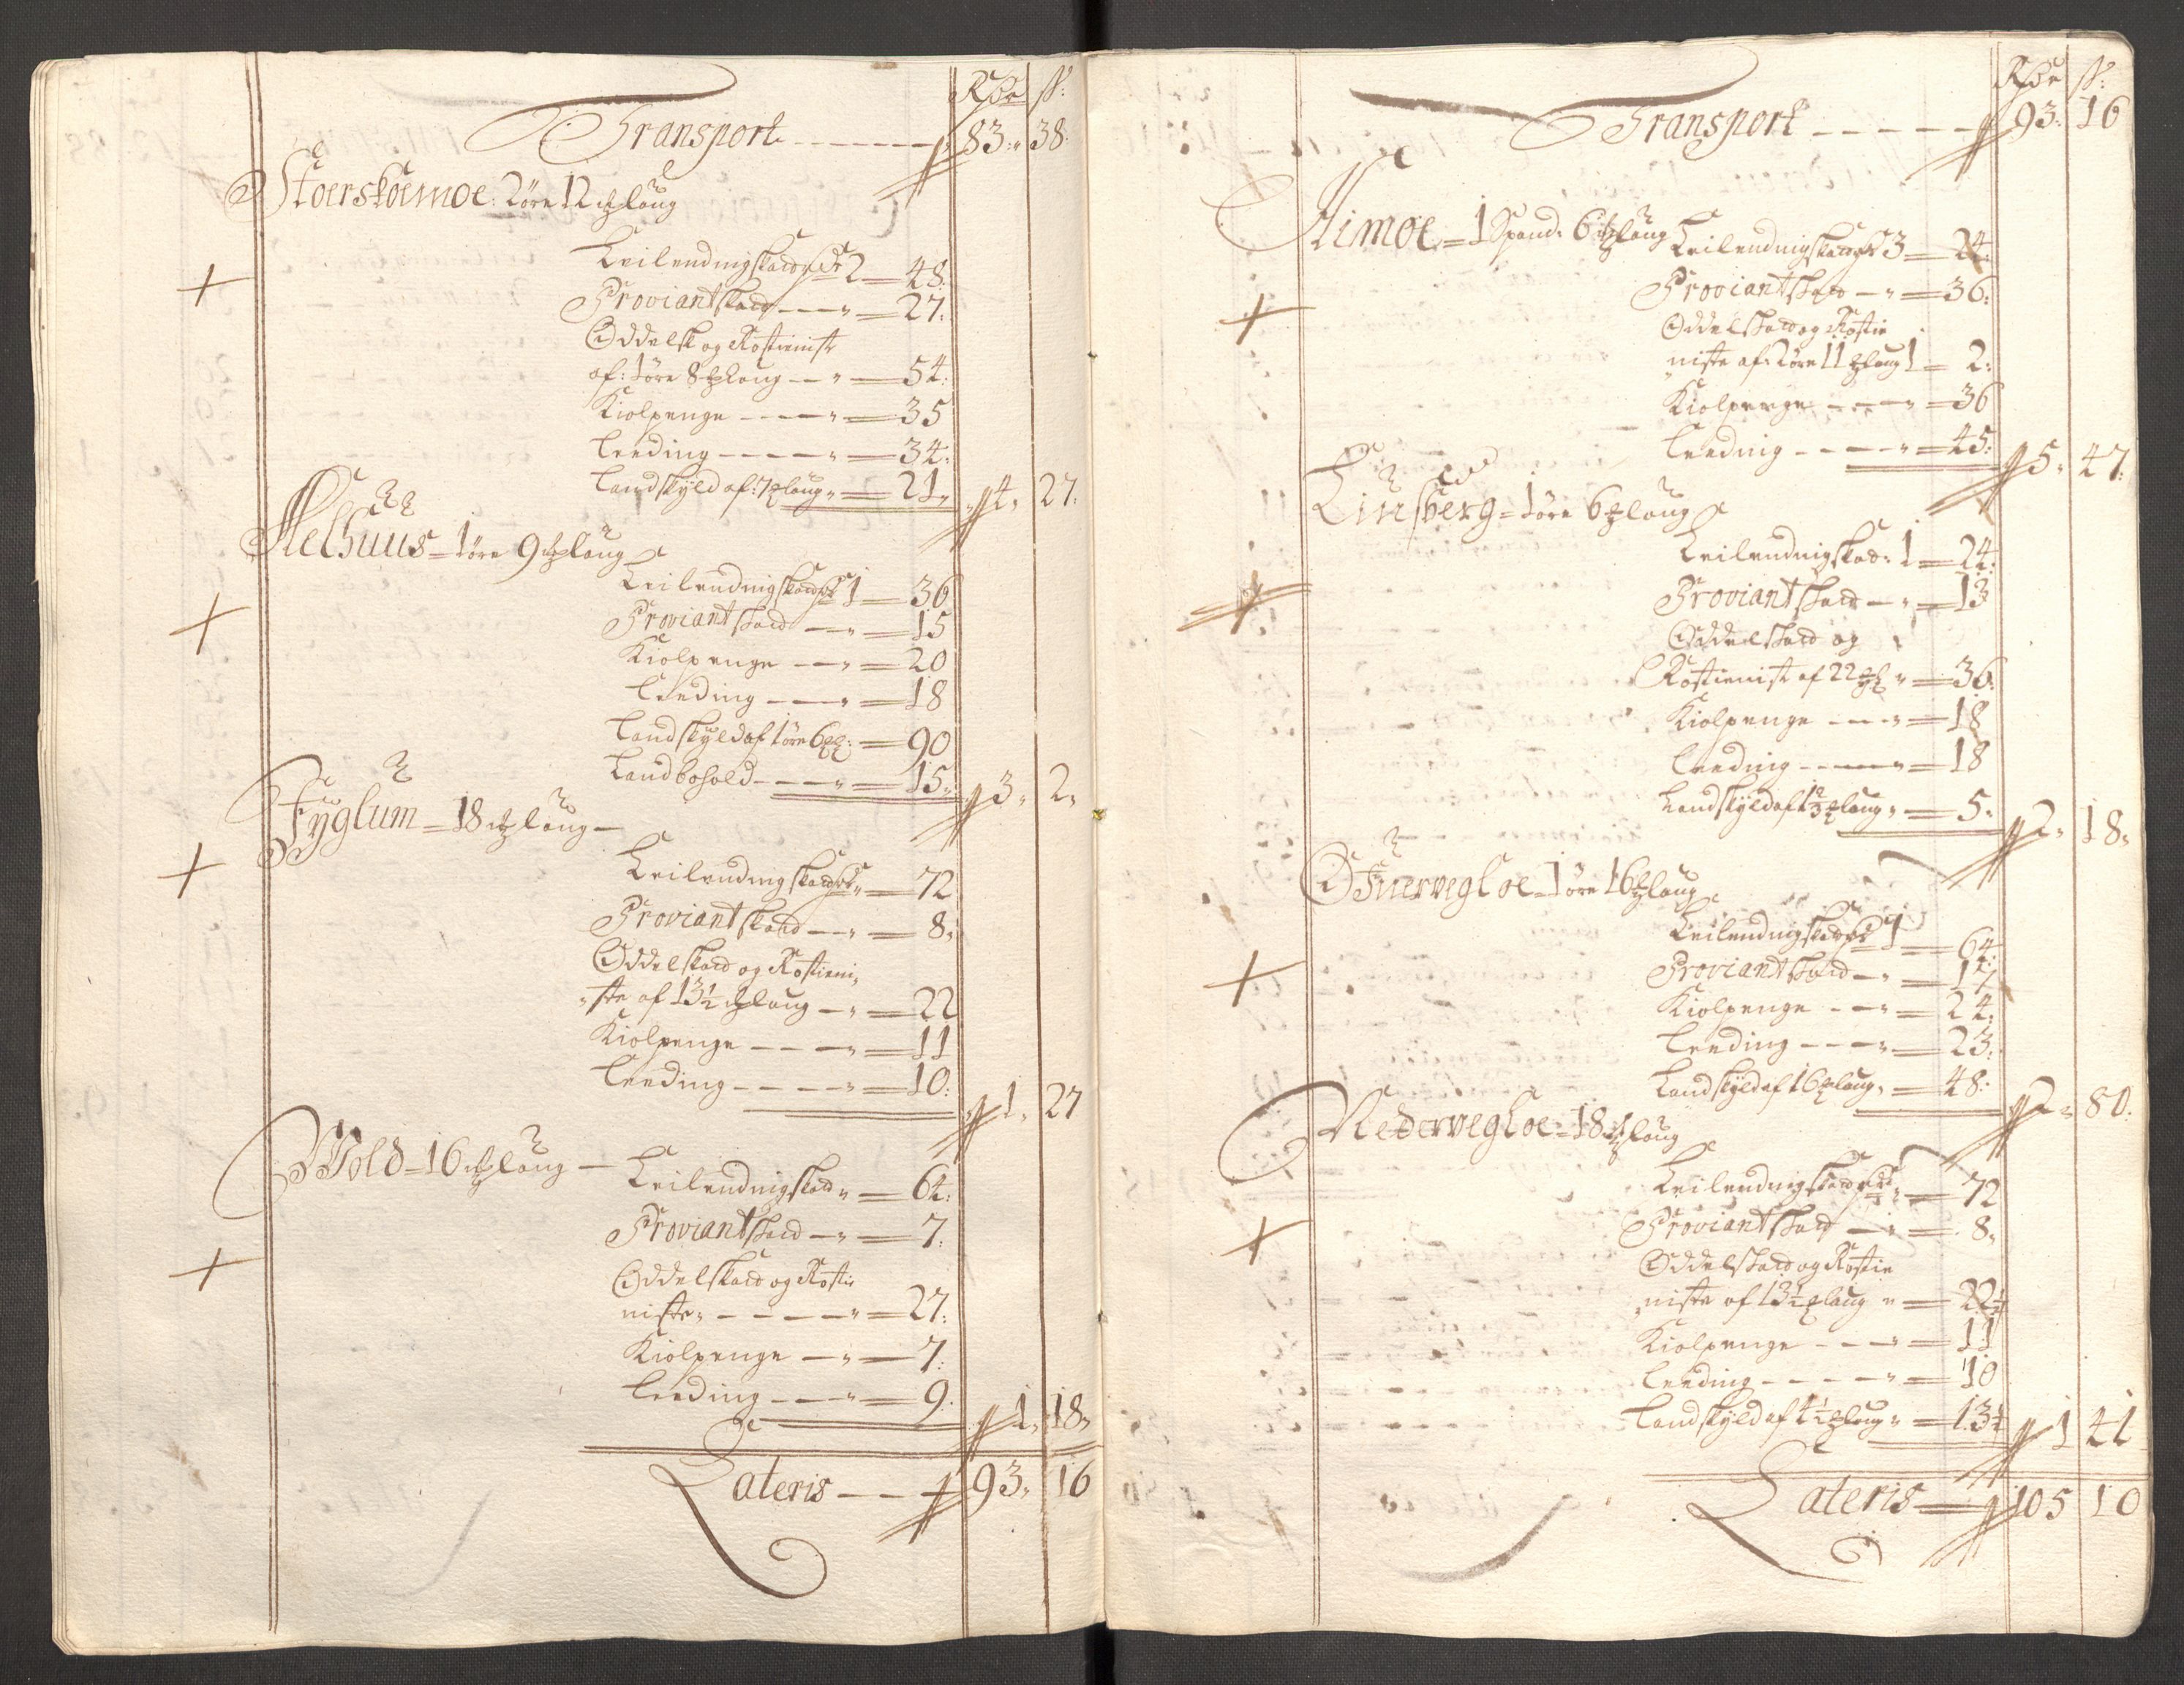 Rdr ß:
Transport 83: 38:
Stoerskoemoe: 2 øre 12 mklaug
Leilendingskatt Rdr 2 = 48:
Proviantskatt = 27:
Oddelsk og Rostienist
af: 1 øre 8 mklaug = 54:
Kiolpenge = 35
Leeding = 34:
Landskyld af: 7 mklaug = 21, 4, 27:
Melhuus = 1 øre 9 mklaug
Leilendingskatt Rdr 1 = 36
Proviantskatt = 15
Kiolpenge = 20
Leeding = 18
Landskyld af 1 øre 6 mkl: = 90
Landbohold = 15, 3, 2,
Fyglum = 18 mklaug
Leilendingskatt Rdr = 72
Proviantskatt = 8,
Oddelskatt og Rostieni,
,ste af 13½ mklaug = 22
Kiolpenge = 11
Leeding = 10: 1, 27
Wold = 16 mklaug
Leilendingskatt = 64:
Proviantskatt = 7:
Oddelskatt og Rostie
niste = 27:
Kiolpenge = 7:
Leeding = 9: 1, 18,
Lateris 93, 16
Rdr ß:
Transport 93: 16
= 1 Spand 6 mklaug
Leilendingskatt Rdr 3 = 24
Proviantskatt = 36:
Oddelskatt og Rostie
niste af: 2 øre 11 mklaug 1 = 2:
Kiolpenge = 36
Leeding = 45: 5, 47:
Liusberg = 1 øre 6 mklaug
Leilendingskatt: 1 = 24:
Proviantskatt = 13
Oddelskatt og
Rostienist af 22 mkl = 36:
Kiolpenge = 18
Leeding = 18
Landskyld af 1⅔ mklaug = 5, 2, 18,
Øfuervegloe = 1 øre 16 mklaug
Leilendingskatt Rdr 1 = 64:
Proviantskatt = 17
Kiolpenge = 24:
Leeding = 23:
Landskyld af 16 mklaug = 48: 2, 80:
Nedervegloe = 18 mklaug
Leilendingskatt Rdr = 72
Proviantskatt = 8,
Oddelskatt og Rostie
niste af 13½ mklaug = 22½
Kiolpenge = 11
Leeding = 10
Landskyld af 4½ mklaug = 13½ 1 41
Lateris 105 10